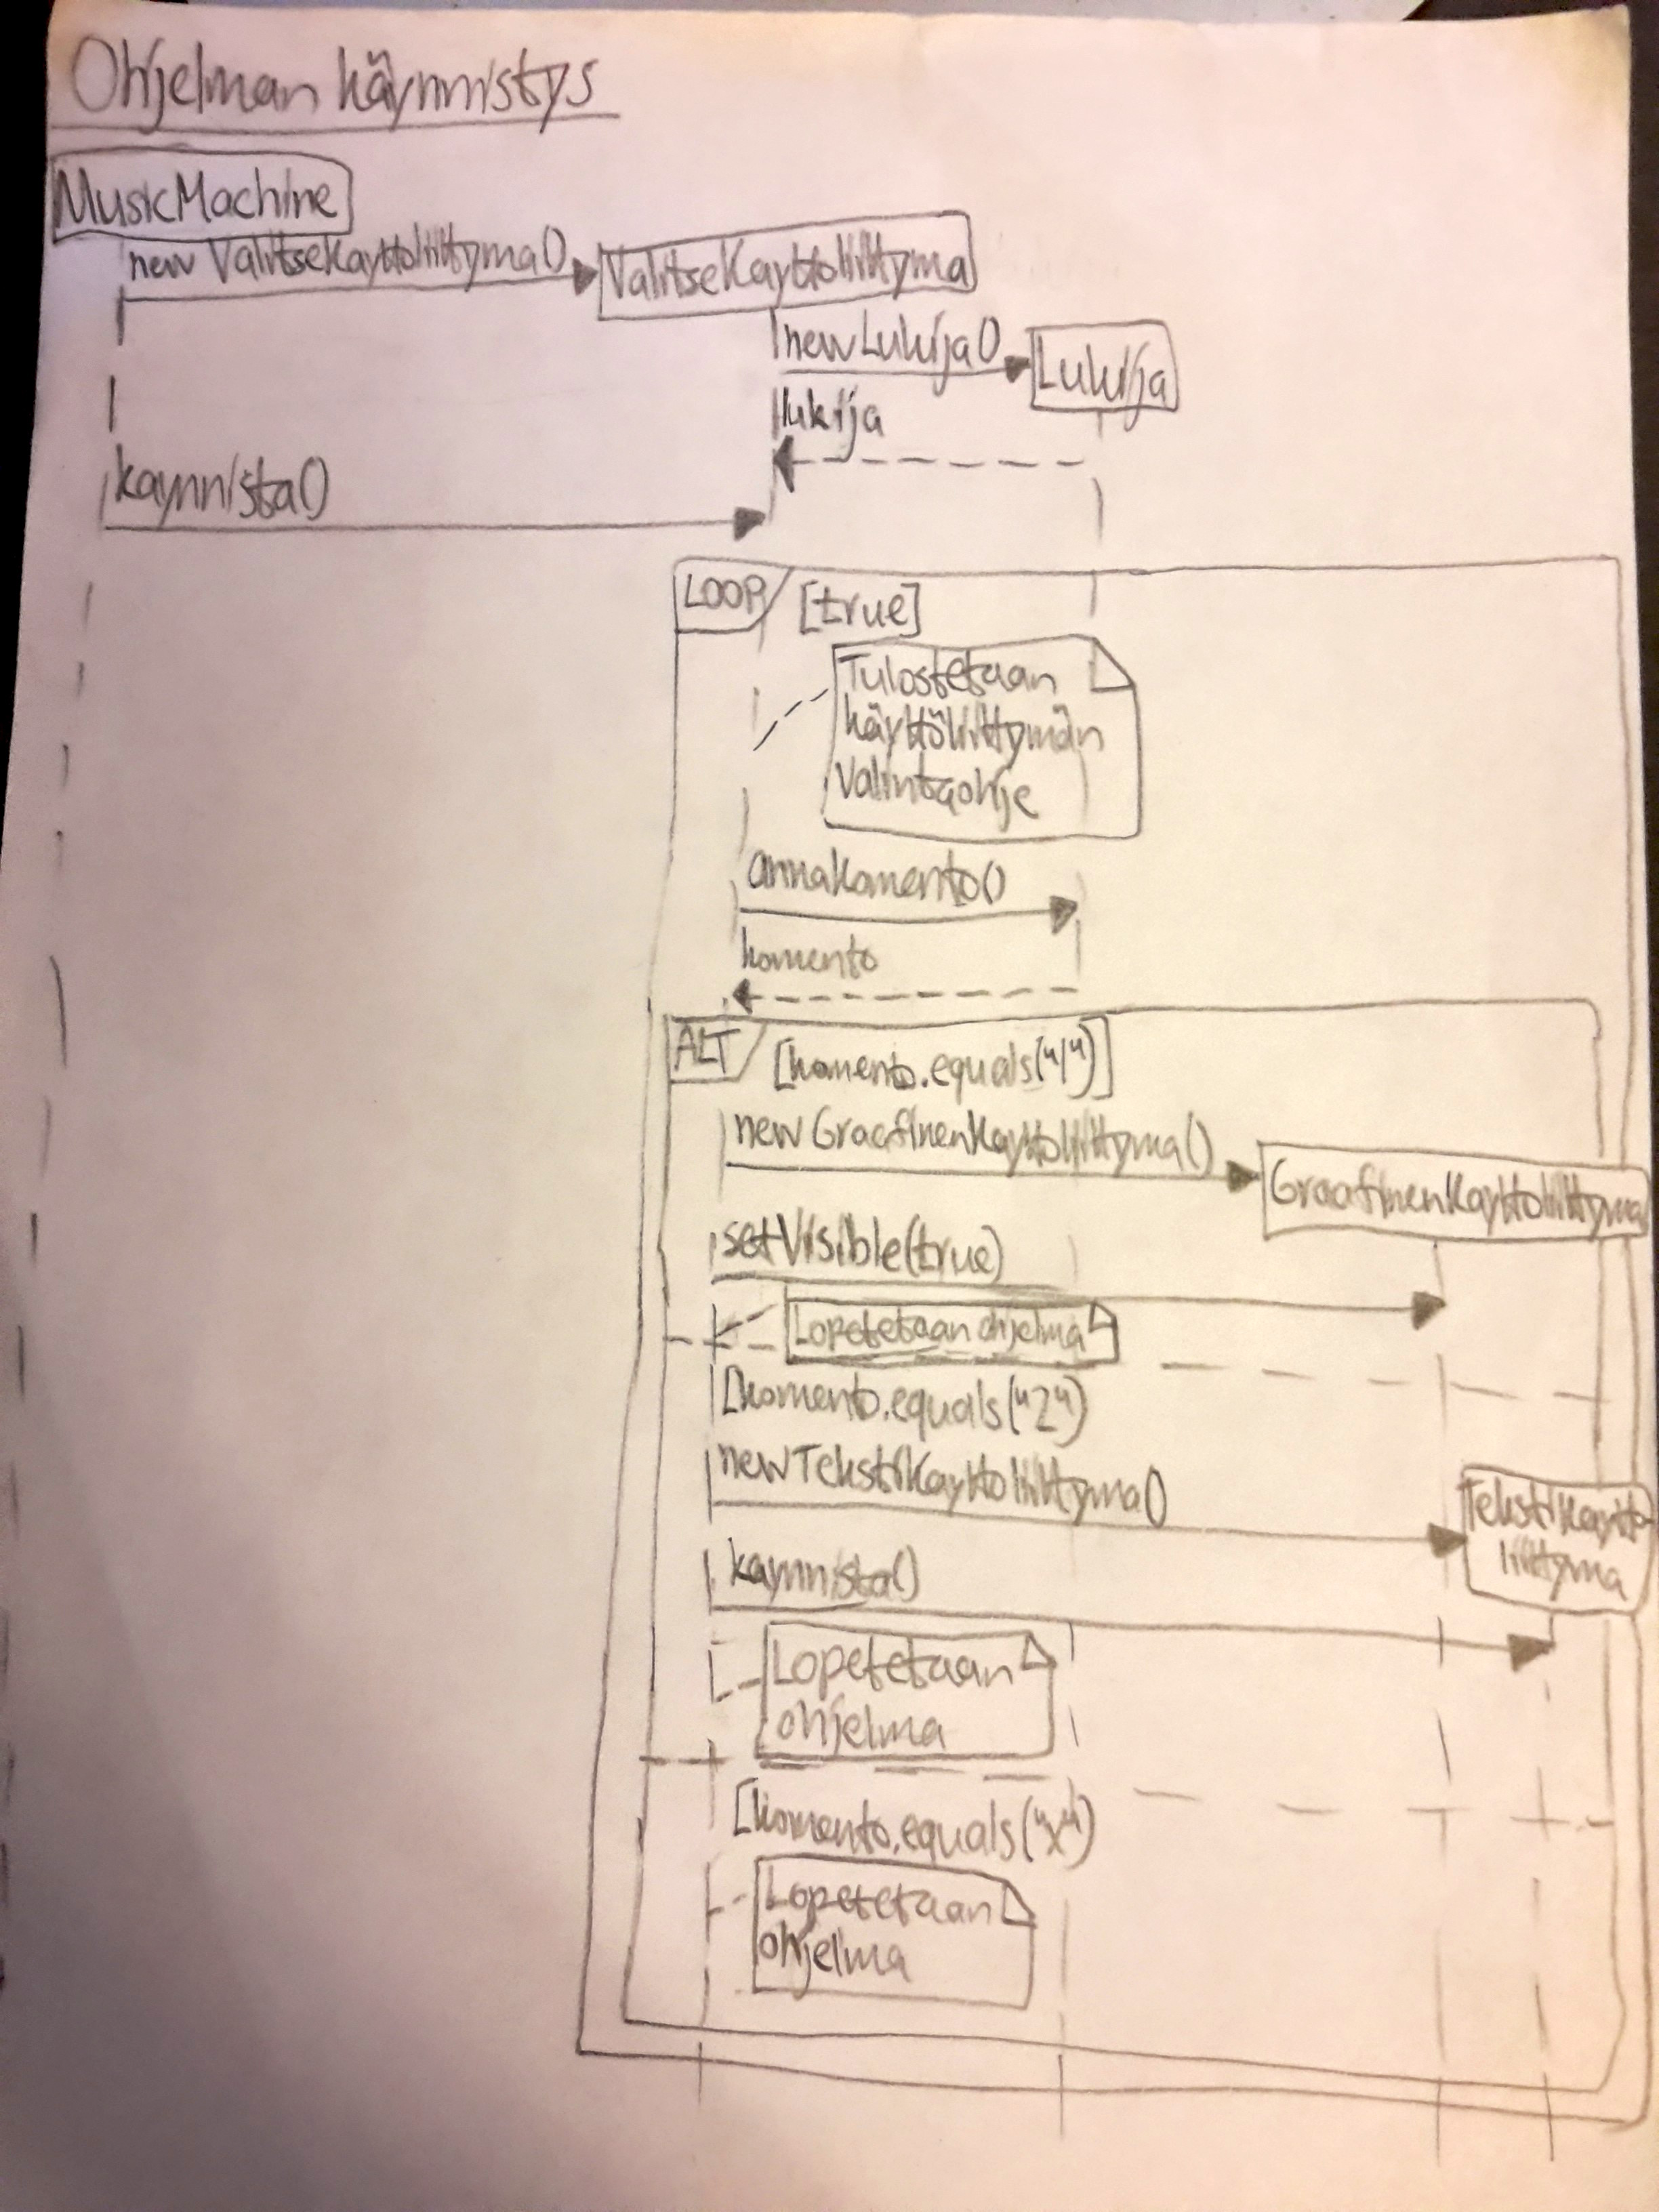 Ohjelman käynnistys
MusicMachine
new ValitseKayttoliittyma()
ValitseKayttoliittyma
new Lukija()
Lukija
lukija
kaynnista()
LOOP
[true]
Tulostetaan
käyttöliittymän
valintaohje
annaKomento()
komento
ALT
[komento.equals("1")]
new GraafinenKayttoliittyma()
GraafinenKayttoliittyma
setVisible(true)
Lopetetaan ohjelma
[komento.equals("2")
new TekstiKayttoliittyma()
TekstiKaytto-
liittyma
kaynnista()
Lopetetaan
ohjelma
[komento.equals("x")
Lopetetaan
ohjelma